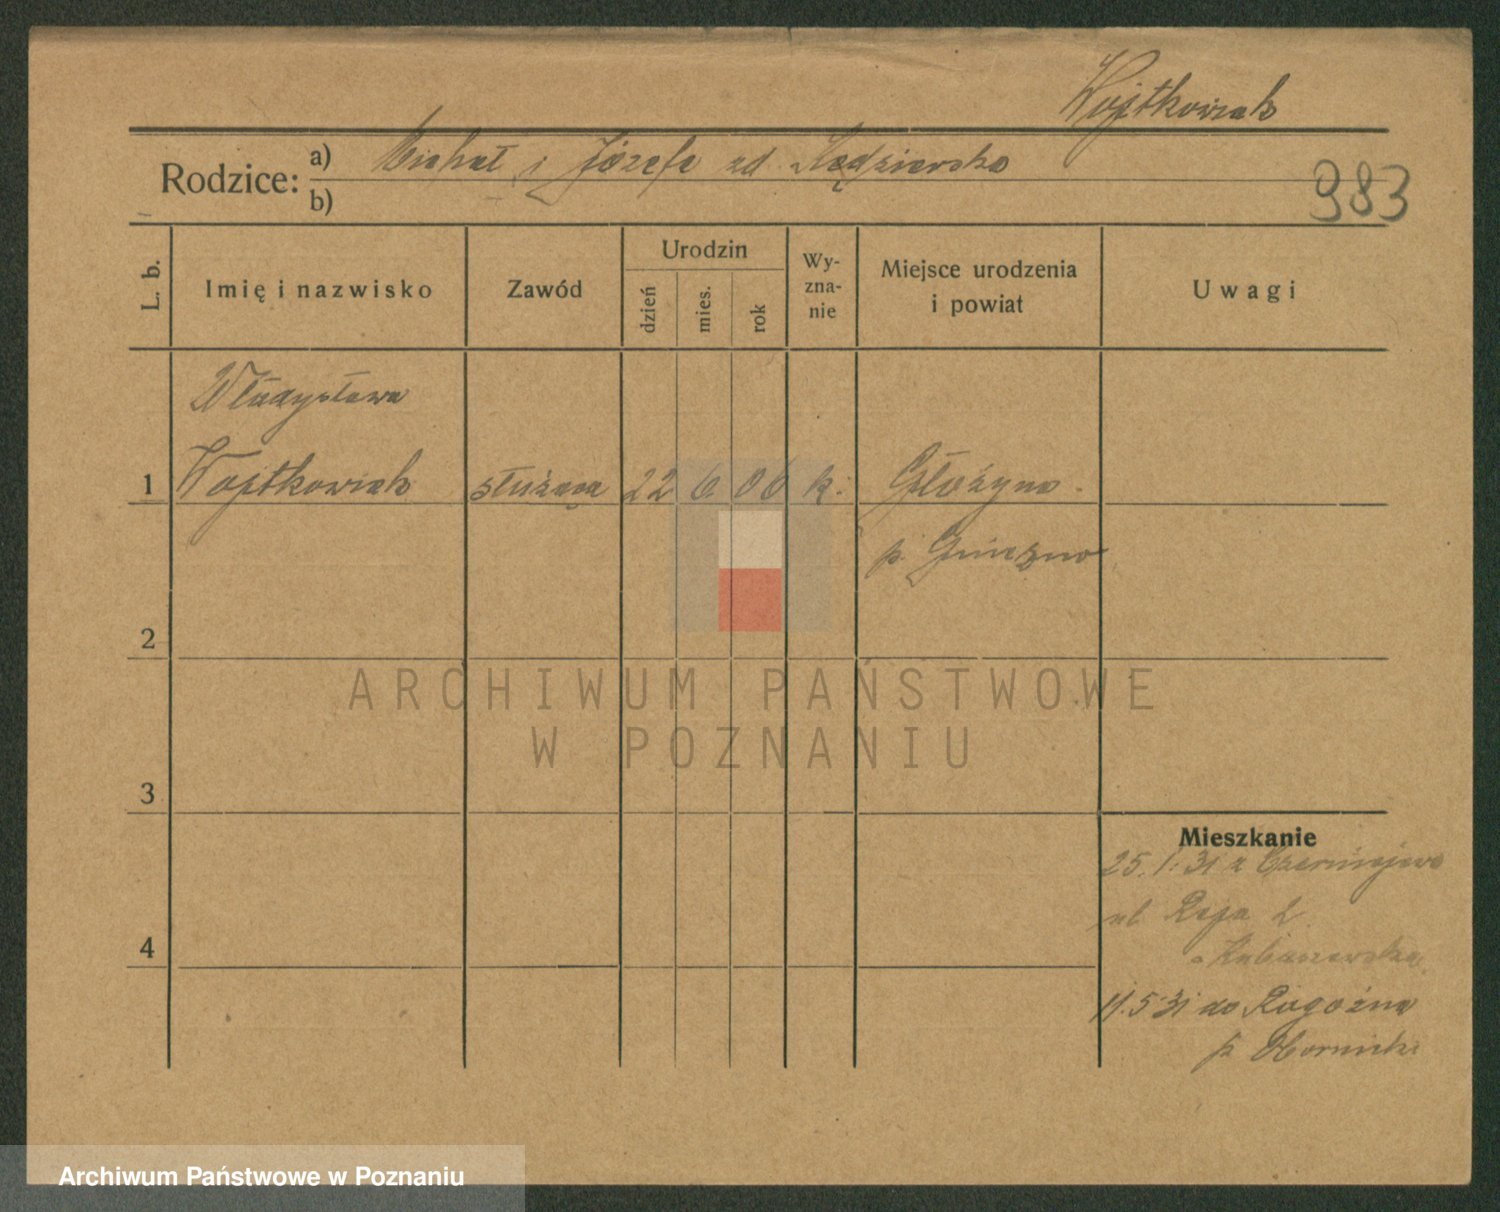 Wojtkowiak
Rodzice: a) Michał i Józefa zd. Kędzierska
b)
983
L. b.
Imię i nazwisko
Zawód
Urodzin
dzień
mies.
rok
Wy-
zna-
nie
Miejsce urodzenia
i powiat
Uwagi
Władysława
1 Wojtkowiak służąca 22 6 06 k.
p. Gniezno
2
3
4
Mieszkanie
25.1.31 z Czerniejewa
ul. Reja 2
11.5.31 do Rogoźna
p. Oborniki
ARCHIWUM PAŃSTWOWE
W POZNANIU
Archiwum Państwowe w Poznaniu